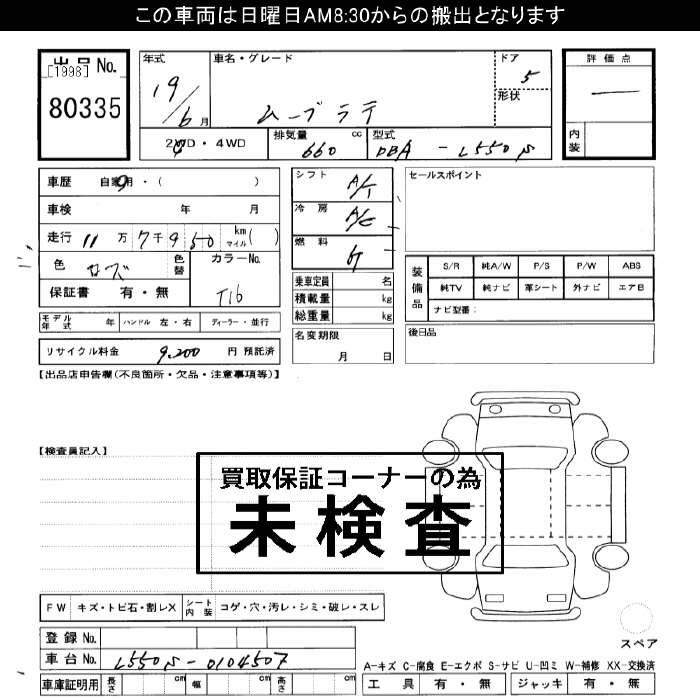 この車両は日曜日AM8:30からの搬出となります
出品No.
[1998]
80335
年式
19/6月
車名・グレード
ムーブラテ
ドア
5
形状
評価点
―
内装
2WD・4WD
排気量 cc
660
型式
DBA-L550S
車歴 自家用・( )
車検 年 月
走行 11万7千950 km マイル( )
色
ローズ
色替
カラーNo.
T16
保証書 有・無
モデル年式 年 ハンドル 左・右 ディーラー・並行
リサイクル料金 9,200 円 預託済
シフト A/T
冷房 A/C
燃料 G
乗車定員 名
積載量 kg
総重量 kg
名変期限
月 日
セールスポイント
装備品
S/R 純A/W P/S P/W ABS
純TV 純ナビ 革シート 外ナビ エアB
ナビ型番:
後日品
【出品店申告欄(不良箇所・欠品・注意事項等)】
【検査員記入】
買取保証コーナーの為
未検査
FW キズ・トビ石・割レX シート内装 コゲ・穴・汚レ・シミ・破レ・スレ
登録No.
車台No. L550S-0104507
車庫証明用 長さ cm 幅 cm 高さ cm
スペア
A-キズ C-腐食 E-エクボ S-サビ U-凹ミ W-補修 XX-交換済
工具 有・無 ジャッキ 有・無